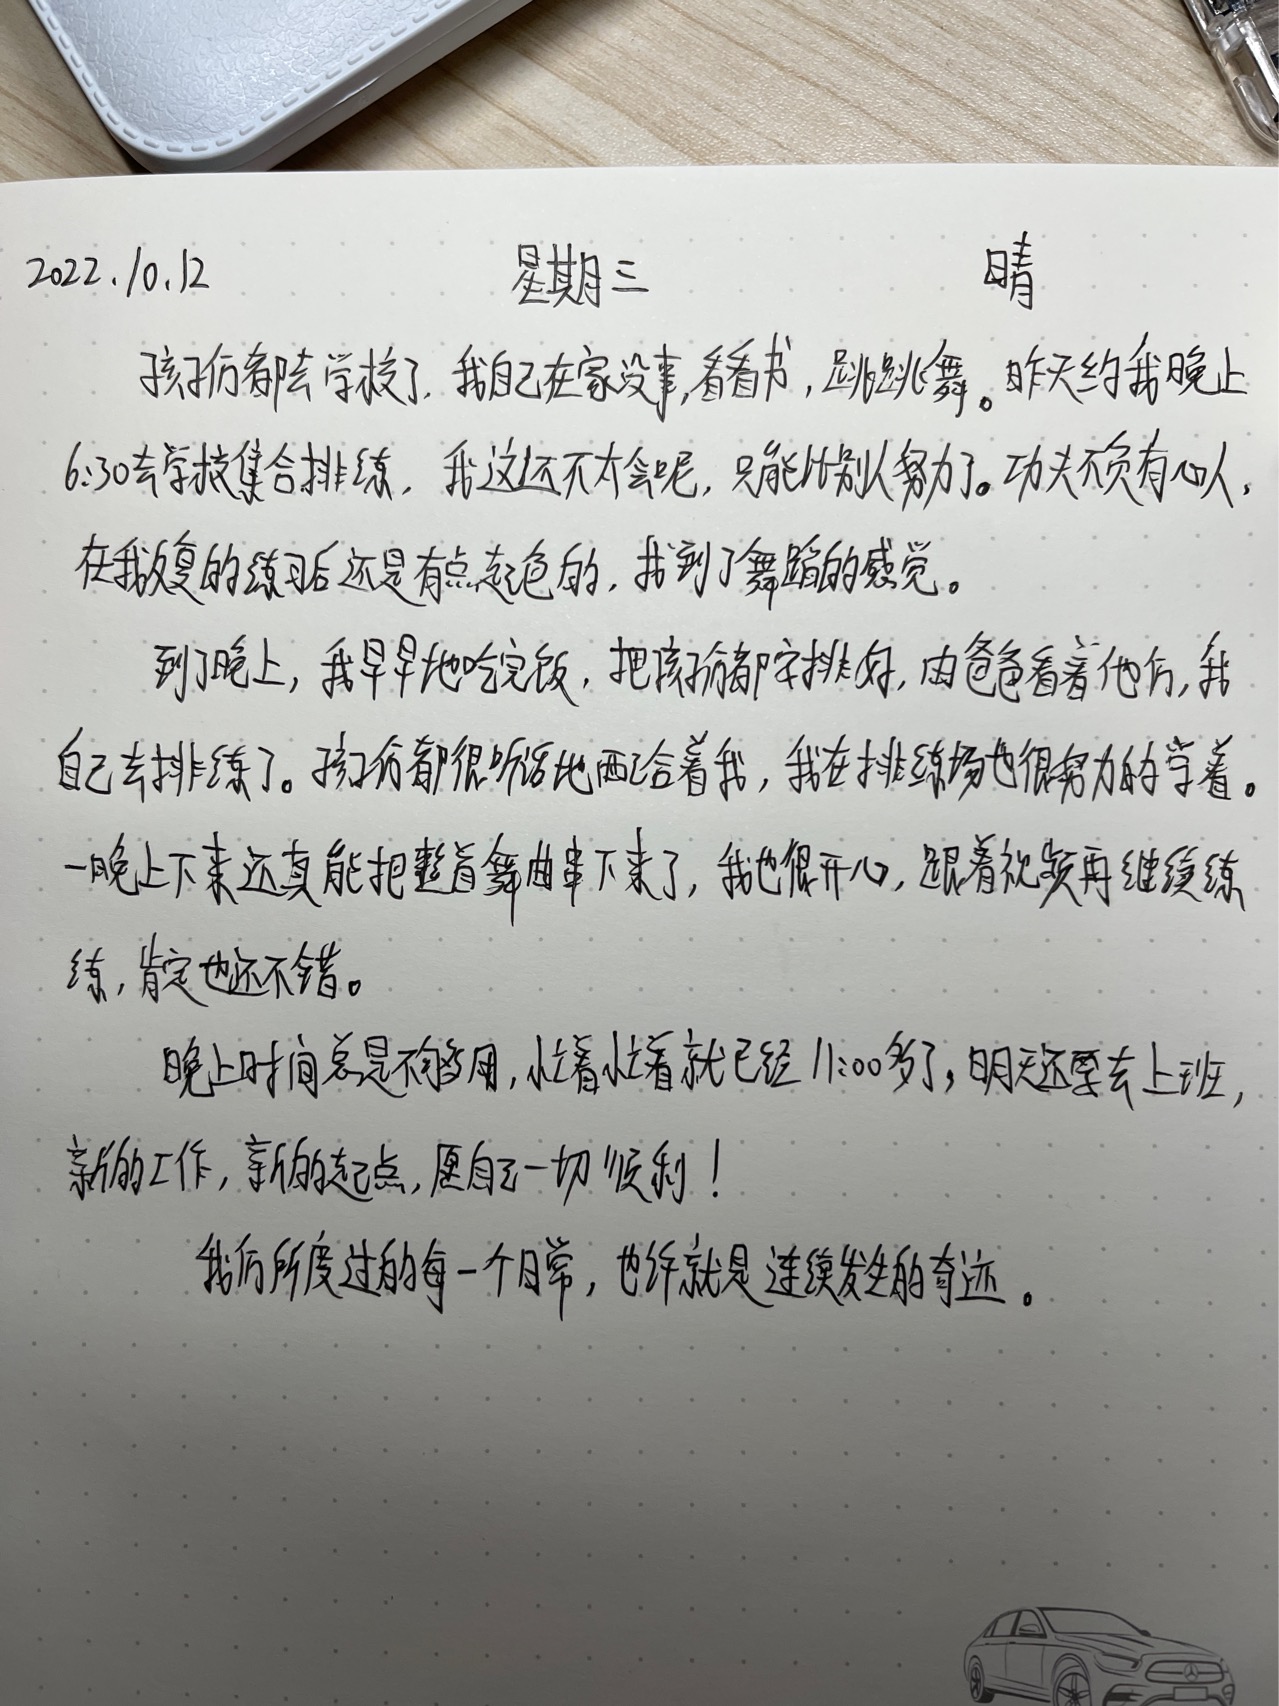 2022.10.12 星期三 晴
孩子们都去学校了,我自己在家没事,看看书,跳跳舞。昨天约我晚上
6:30去学校集合排练,我这还不太会呢,只能比别人努力了。功夫不负有心人,
在我反复的练习后还是有点起色的,找到了舞蹈的感觉。
到了晚上,我早早地吃完饭,把孩子们都安排好,由爸爸看着他们,我
自己去排练了。孩子们都很听话地配合着我,我在排练场也很努力的学着。
一晚上下来还真能把整首舞曲串下来了,我也很开心,跟着视频再继续练
练,肯定也还不错。
晚上时间总是不够用,忙着忙着就已经11:00多了,明天还要去上班,
新的工作,新的起点,愿自己一切顺利!
我们所度过的每一个日常,也许就是连续发生的奇迹。